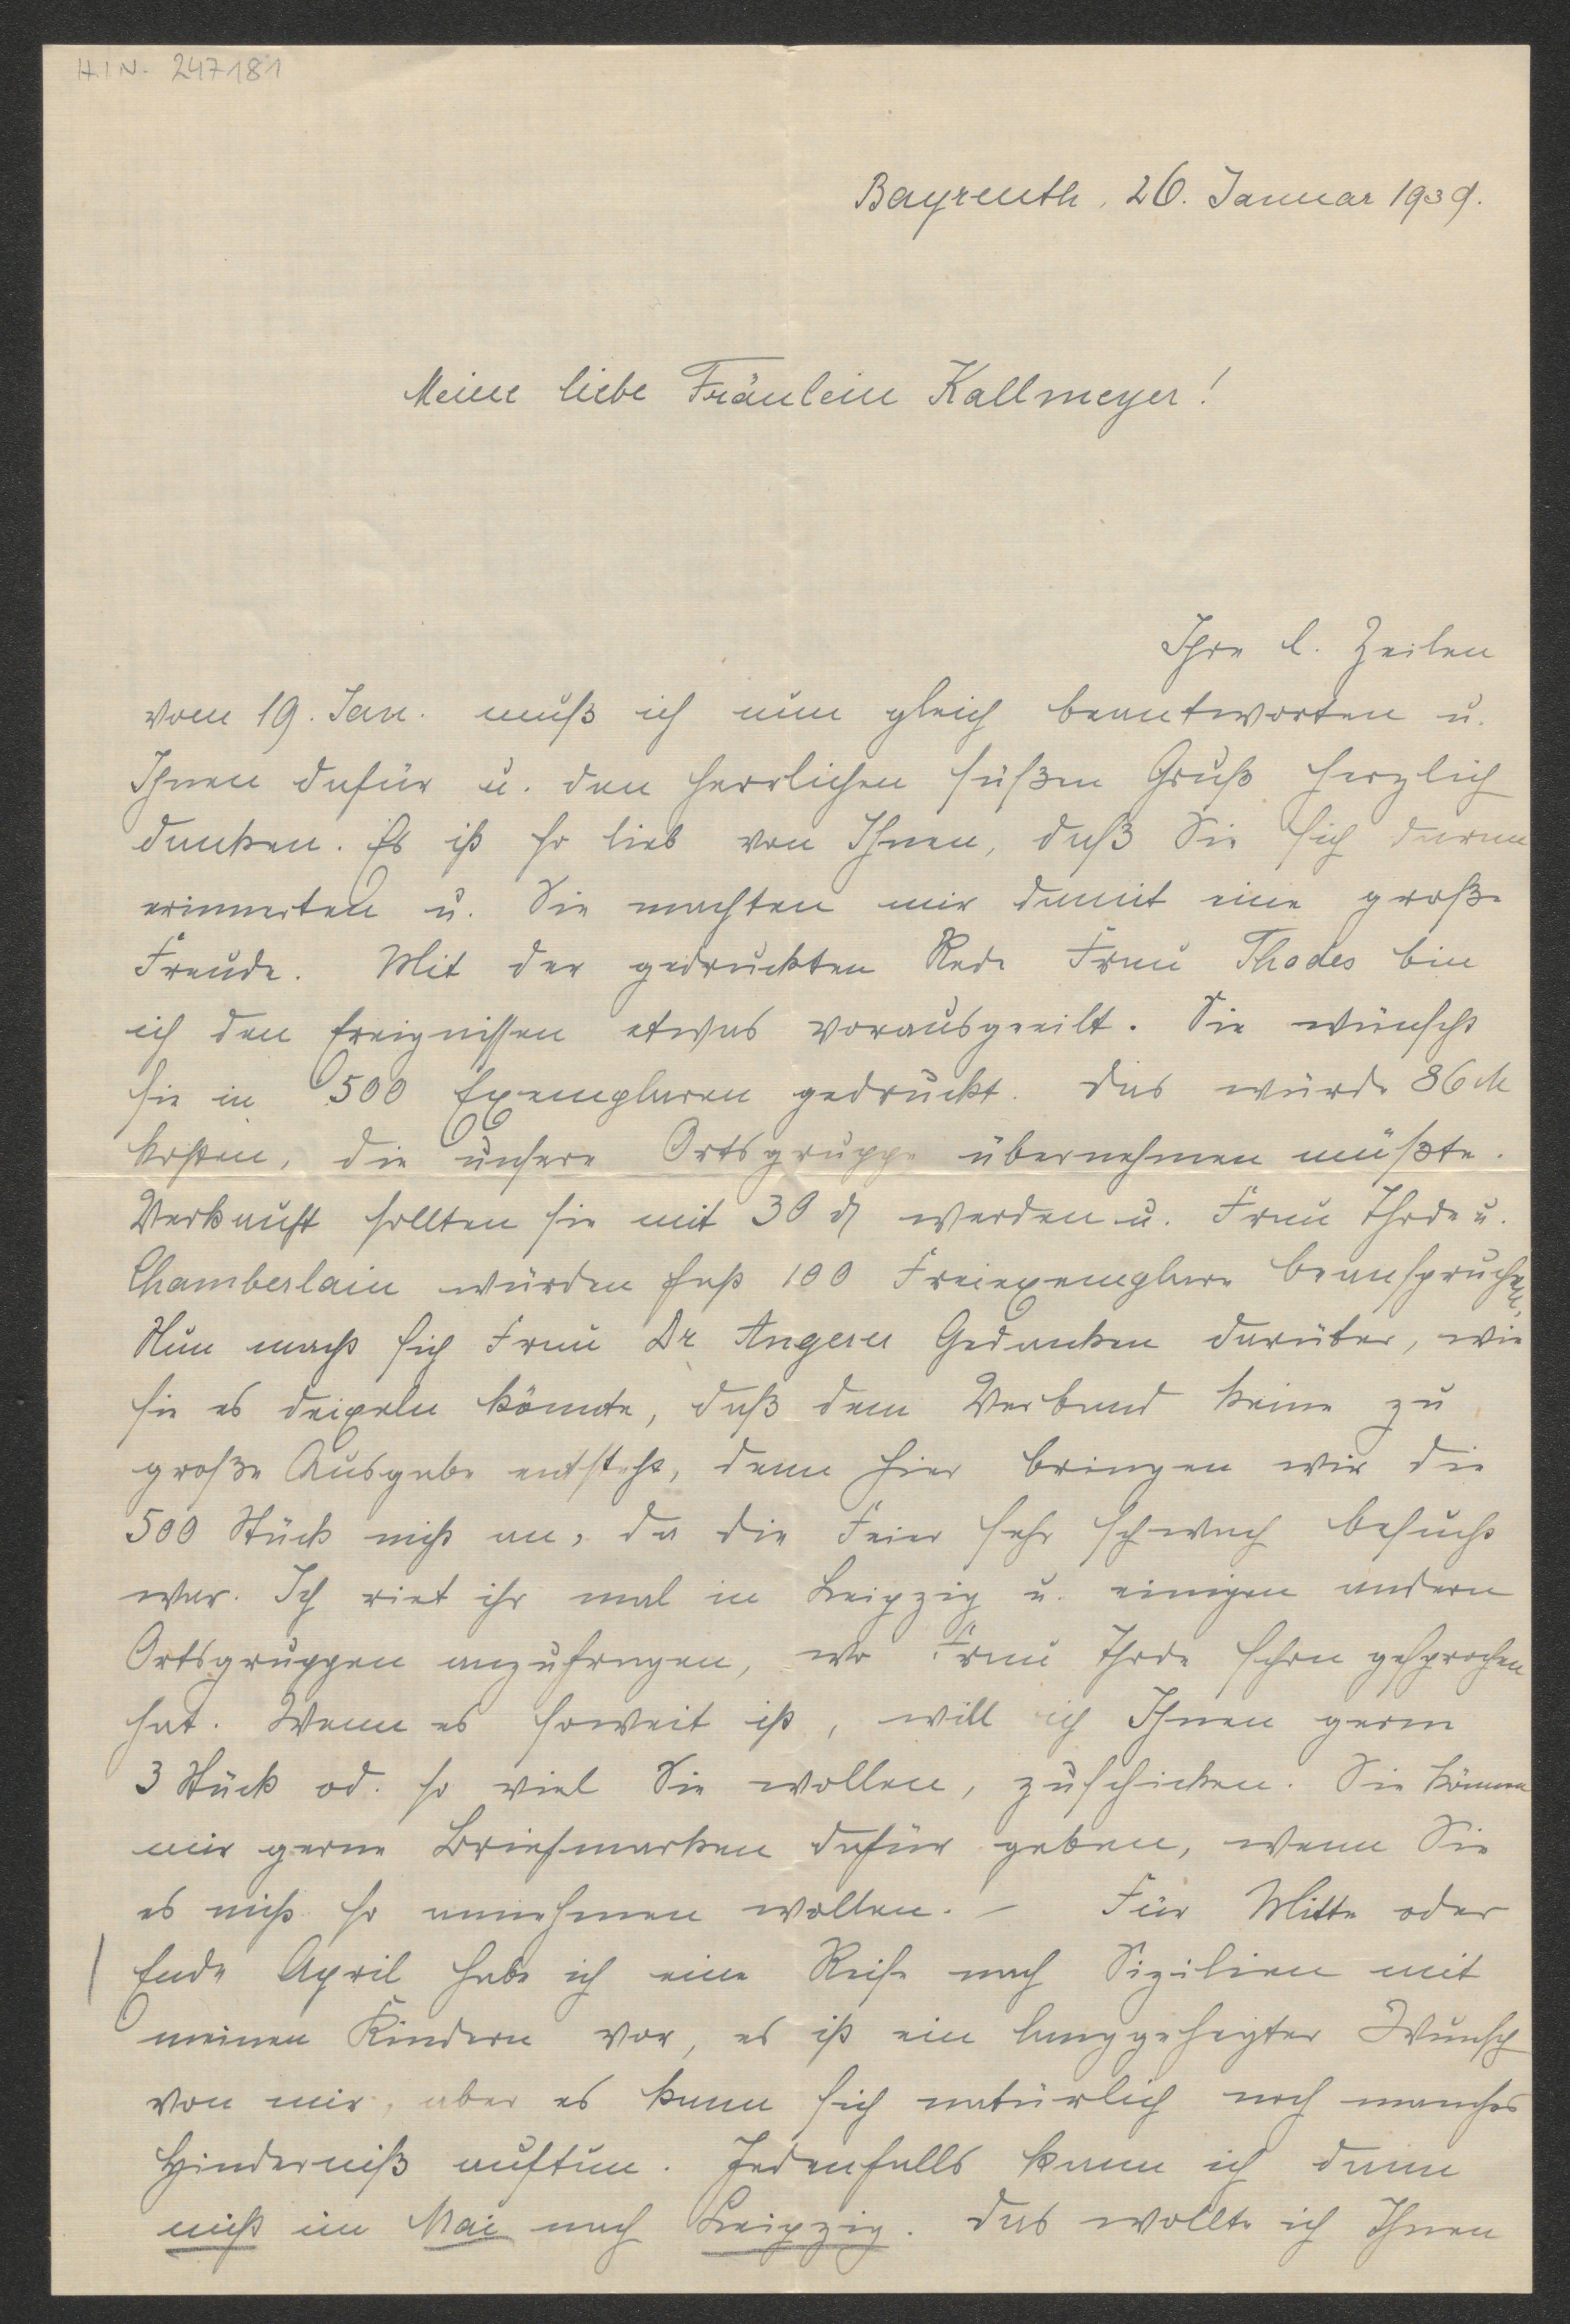 H.I.N. 247181
Bayreuth, 26. Januar 1939.
Meine liebe Fräulein Kallmeyer!
Ihre l. Zeilen
vom 19. Jan. muß ich nun gleich beantworten u.
Ihnen dafür u. den herrlichen süßen Gruß herzlich
danken. Es ist so lieb von Ihnen, daß Sie sich daran
erinnerten u. Sie machten mir damit eine große
Freude. Mit der gedruckten Rede Frau Thodes bin
ich den Ereignissen etwas vorausgeeilt. Sie wünscht
sie in 500 Exemplaren gedruckt. Das würde 86 M
kosten, die unsere Ortsgruppe übernehmen müßte.
Verkauft sollten sie mit 30 ₰ werden u. Frau Thode u.
Chamberlain würden fast 100 Freiexemplare beanspruchen.
Nun macht sich Frau Dr Angerer Gedanken darüber, wie
sie es deixeln könnte, daß dem Verband keine zu
große Ausgabe entsteht, denn hier bringen wir die
500 Stück nicht an, da die Feier sehr schwach besucht
war. Ich riet ihr mal in Leipzig u. einigen andern
Ortsgruppen anzufragen, wo Frau Thode schon gesprochen
hat. Wenn es soweit ist, will ich Ihnen gern
3 Stück od. so viel Sie wollen, zuschicken. Sie können
mir gerne Briefmarken dafür geben, wenn Sie
es nicht so annehmen wollen. – Für Mitte oder
Ende April habe ich eine Reise nach Sizilien mit
meinen Kindern vor, es ist ein langgehegter Wunsch
von mir, aber es kann sich natürlich noch manches
Hinderniß auftun. Jedenfalls kann ich dann
nicht im Mai nach Leipzig. Das wollte ich Ihnen